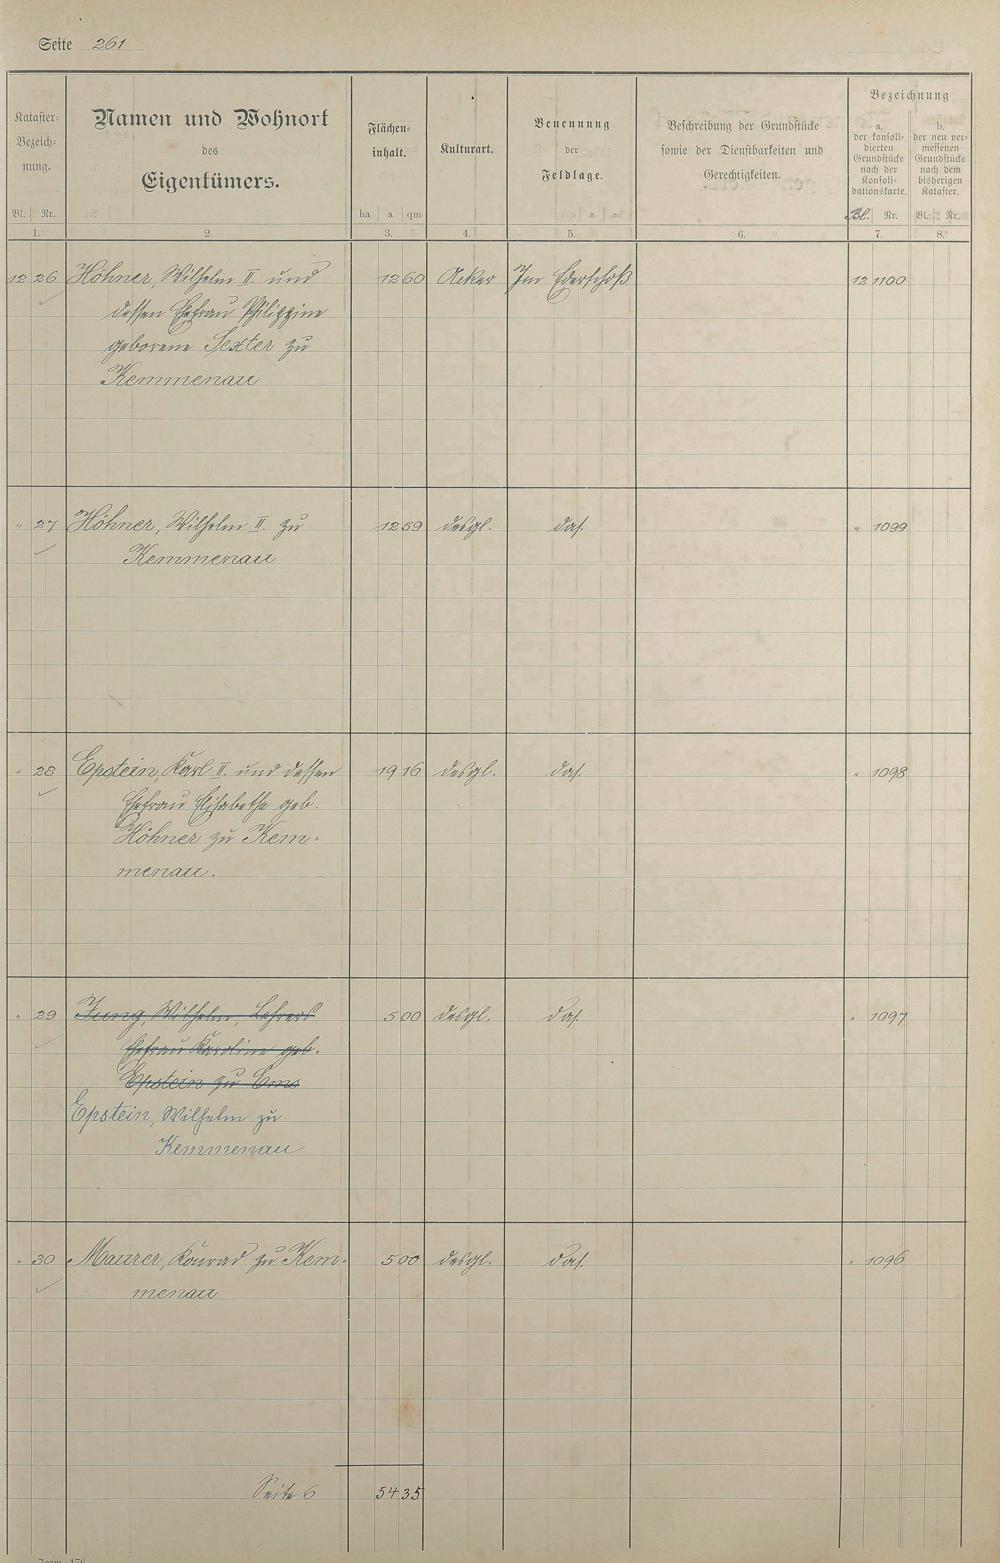 Seite 261
Kataster-
Bezeich-
nung.
Bl. Nr.
1.
Namen und Wohnort
des
Eigentümers.
2.
Flächen-
inhalt.
ha a qm
3.
Kulturart.
4.
Benennung
der
Feldlage.
5.
Beschreibung der Grundstücke
sowie der Dienstbarkeiten und
Gerechtigkeiten.
6.
Bezeichnung
a.
der konsoli-
dierten
Grundstücke
nach der
Konsoli-
dationskarte.
Bl. Nr.
7.
b.
der neu ver-
messenen
Grundstücke
nach dem
bisherigen
Kataster.
Bl. Nr.
8.
12 26 Höhner, Wilhelm II. und 12 60 Acker Im Ederschoß 12 1100
dessen Ehefrau Philippine
geborene Sexter zu
Kemmenau
" 27 Höhner, Wilhelm II. zu 12 59 desgl. das. " 1099
Kemmenau
" 28 Epstein, Karl II. und dessen 19 16 desgl. das. " 1098
Ehefrau Elisabetha geb.
Höhner zu Kem-
menau.
" 29 Jung, Wilhelm, Lehrers 5 00 desgl. das. " 1097
Ehefrau Karoline geb.
Epstein zu Ems
Epstein, Wilhelm zu
Kemmenau
" 30 Maurer, Konrad zu Kem- 5 00 desgl. das. " 1096
menau
Seite 6 54 35
Form. 176